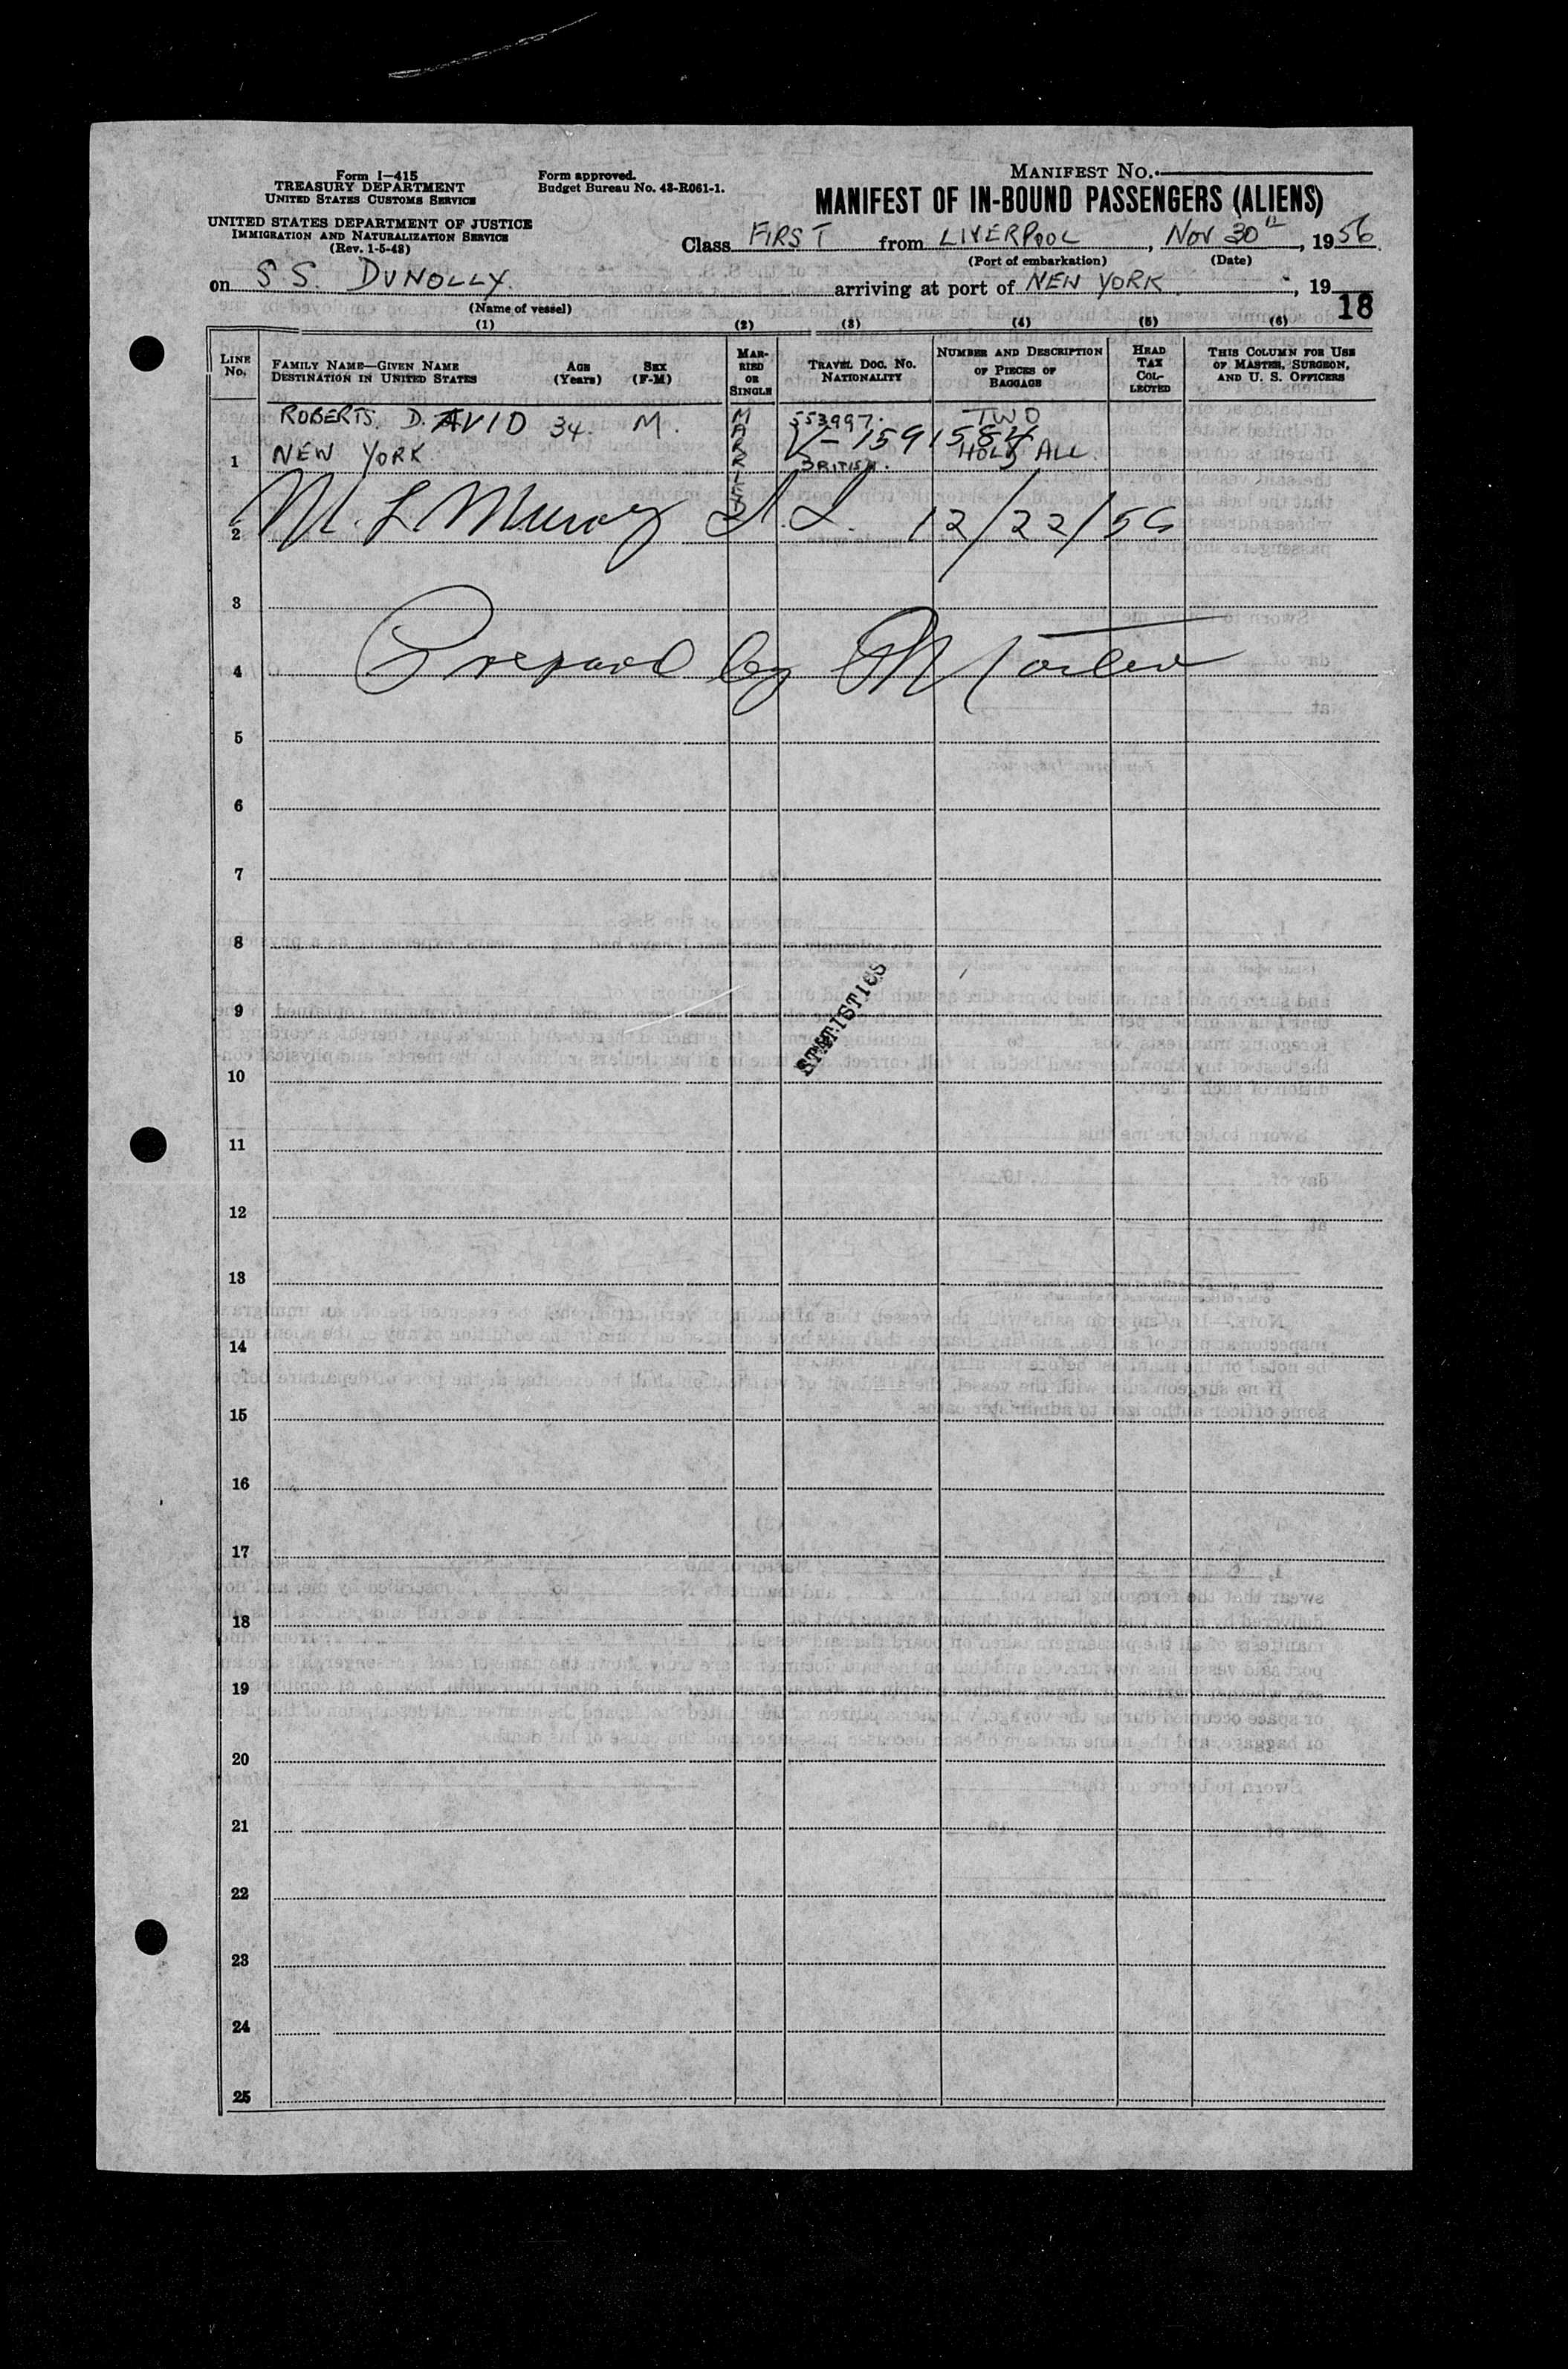 Form I-415
TREASURY DEPARTMENT
UNITED STATES CUSTOMS SERVICE
UNITED STATES DEPARTMENT OF JUSTICE
IMMIGRATION AND NATURALIZATION SERVICE
(Rev. 1-5-48)
Form approved.
Budget Bureau No. 43-R061-1.
MANIFEST NO.
MANIFEST OF IN-BOUND PASSENGERS (ALIENS)
Class FIRST from LIVERPOOL, NOV 30th, 1956.
(Port of embarkation) (Date)
on S S. DUNOLLY. arriving at port of NEW YORK, 19
(Name of vessel)
18
(1) (2) (3) (4) (5) (6)
LINE No.
FAMILY NAME—GIVEN NAME
DESTINATION IN UNITED STATES
AGE (Years)
SEX (F-M)
MARRIED OR SINGLE
TRAVEL DOC. NO.
NATIONALITY
NUMBER AND DESCRIPTION OF PIECES OF BAGGAGE
HEAD TAX COLLECTED
THIS COLUMN FOR USE OF MASTER, SURGEON, AND U. S. OFFICERS
ROBERTS. D. AVID 34. M. 553997. TWO
V-1591584
1 NEW YORK BRITISH. HOLD ALL.
2 M. L Murray 12/22/56
3
4 Prepared by
5
6
7
8
9
STATISTICS
10
11
12
13
14
15
16
17
18
19
20
21
22
23
24
25